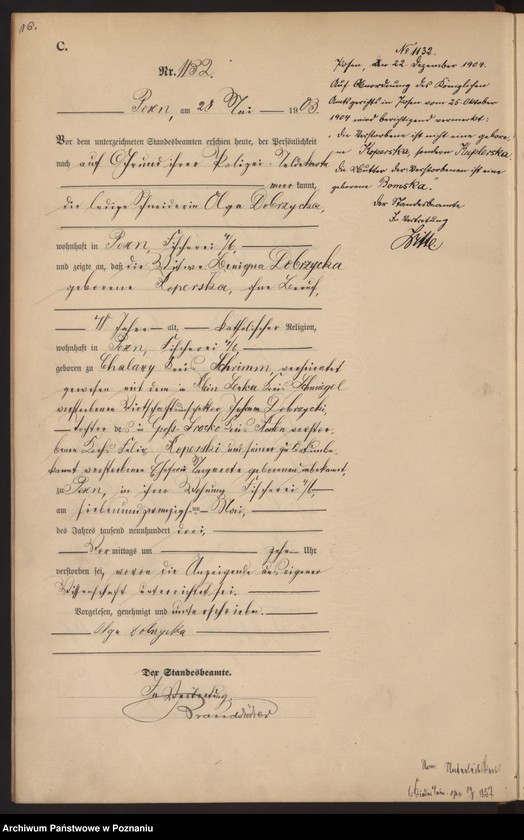 16.
C.
Nr. 1132.
Posen, am 28 Mai 1903.
Vor dem unterzeichneten Standesbeamten erschien heute, der Persönlichkeit
nach auf Grund ihrer Polizei-Meldekarte
erkannt,
die ledige Schneiderin Olga Dobrzycka,
wohnhaft in Posen, Fischerei
und zeigte an, daß die Witwe Benigna Dobrzycka
geborene Koperska, ohne Beruf,
Jahre alt, katholischer Religion,
wohnhaft in Posen, Fischerei
geboren zu Chalawy Kreis Schrimm, verheiratet
gewesen mit dem in Kreis Schmiegel
verstorbenen Wirtschaftsinspektor Johann Dobrzycki,
Tochter des in Groß Kreis verstor-
benen Kochs Felix Koperski und seiner zu
verstorbenen Ehefrau geborenen unbekannt,
zu Posen, in ihrer Wohnung Fischerei
am siebenundzwanzigsten Mai,
des Jahres tausend neunhundert drei,
Vormittags um zehn Uhr
verstorben sei, wovon die Anzeigende aus eigener
Wissenschaft unterrichtet sei.
Vorgelesen, genehmigt und unterschrieben.
Olga Dobrzycka
Der Standesbeamte.
In Vertretung.
No 1132.
Posen, den 22. Dezember 1904.
Auf Anordnung des Königlichen
Amtsgerichts in Posen vom 25. Oktober
1904 wird berichtigend vermerkt:
die Verstorbene ist nicht eine gebore-
ne Koperska, sondern
die Mutter der Verstorbenen ist eine
geborene Bomska."
Der Standesbeamte
In Vertretung
Archiwum Państwowe w Poznaniu